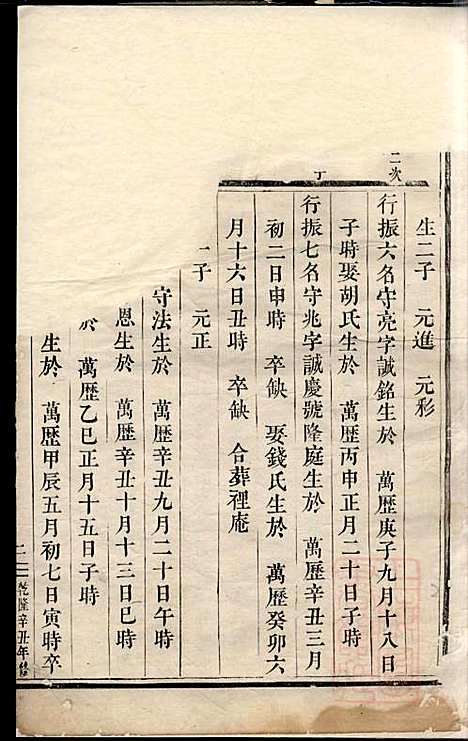 生二子　元進　元彩
二次
行振六名守亮字誠銘生於　萬歷庚子九月十八日
子時娶胡氏生於　萬歷丙申正月二十日子時
丁
行振七名守兆字誠慶號隆庭生於　萬歷辛丑三月
初二日申時　卒缺　娶錢氏生於　萬歷癸卯六
月十六日丑時　卒缺　合葬裡庵
子　元正
守法生於　萬歷辛丑九月二十日午時
恩生於　萬歷辛丑十月十三日巳時
於　萬歷乙巳正月十五日子時
生於　萬歷甲辰五月初七日寅時卒
乾隆辛丑年修